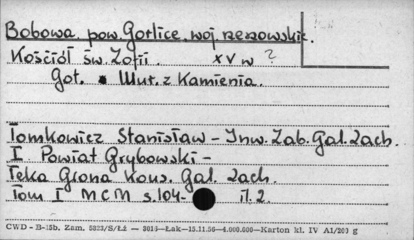 Bobowa pow. Gorlice woj. rzeszowskie.
Kościół św. Zofii. XV w ?
Got. Mur. z Kamienia.
Tomkowicz Stanisław - Inw. Zab. Gal. Zach.
I Powiat Grybowski -
Teka Grona Kons. Gal. Zach.
Tom I MCM s. 104- il. 2.
CWD - B-15b. Zam. 5823/S/Łż — 3015—Łak—15.11.56—4.000.000—Karton kl. IV A1/200 g